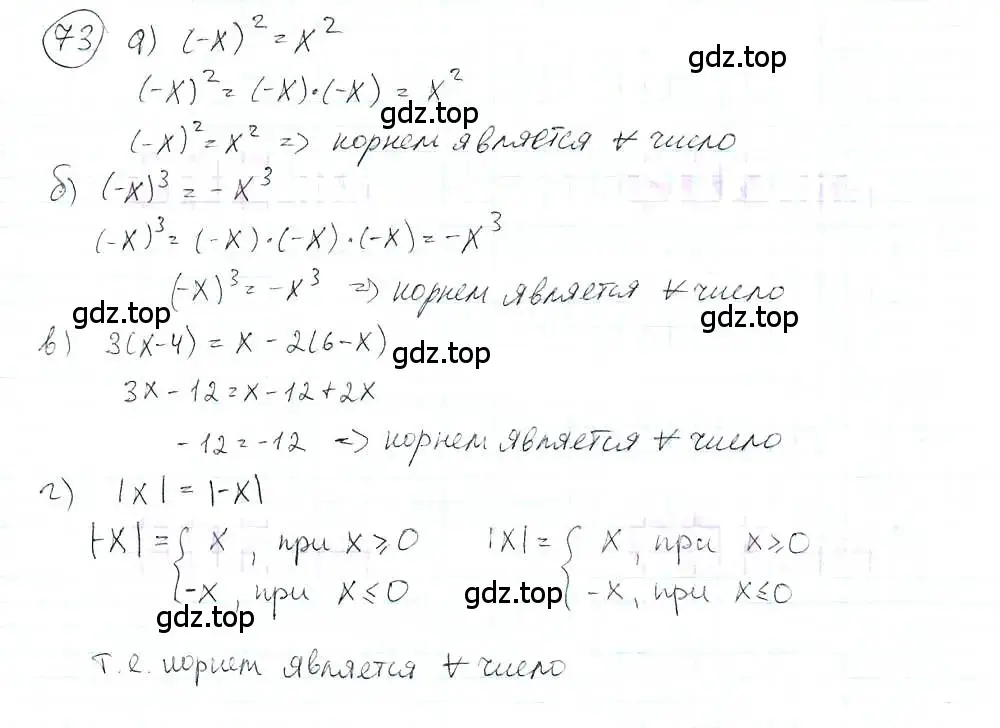 73 а) (-x)² = x²
gdz.top
(-x)² = (-x)·(-x) = x²
gdz.top
(-x)² = x² => корнем является ∀ число
б) (-x)³ = -x³
(-x)³ = (-x)·(-x)·(-x) = -x³
(-x)³ = -x³ => корнем является ∀ число
gdz.top gdz.top
в) 3(x-4) = x - 2(6-x)
gdz.top
3x - 12 = x - 12 + 2x
-12 = -12 => корнем является ∀ число
г) |x| = |-x|
|-x| = { x, при x ⩾ 0 |x| = { x, при x ⩾ 0
-x, при x ⩽ 0 gdz.top -x, при x ⩽ 0
gdz.top
т.е. корнем является ∀ число